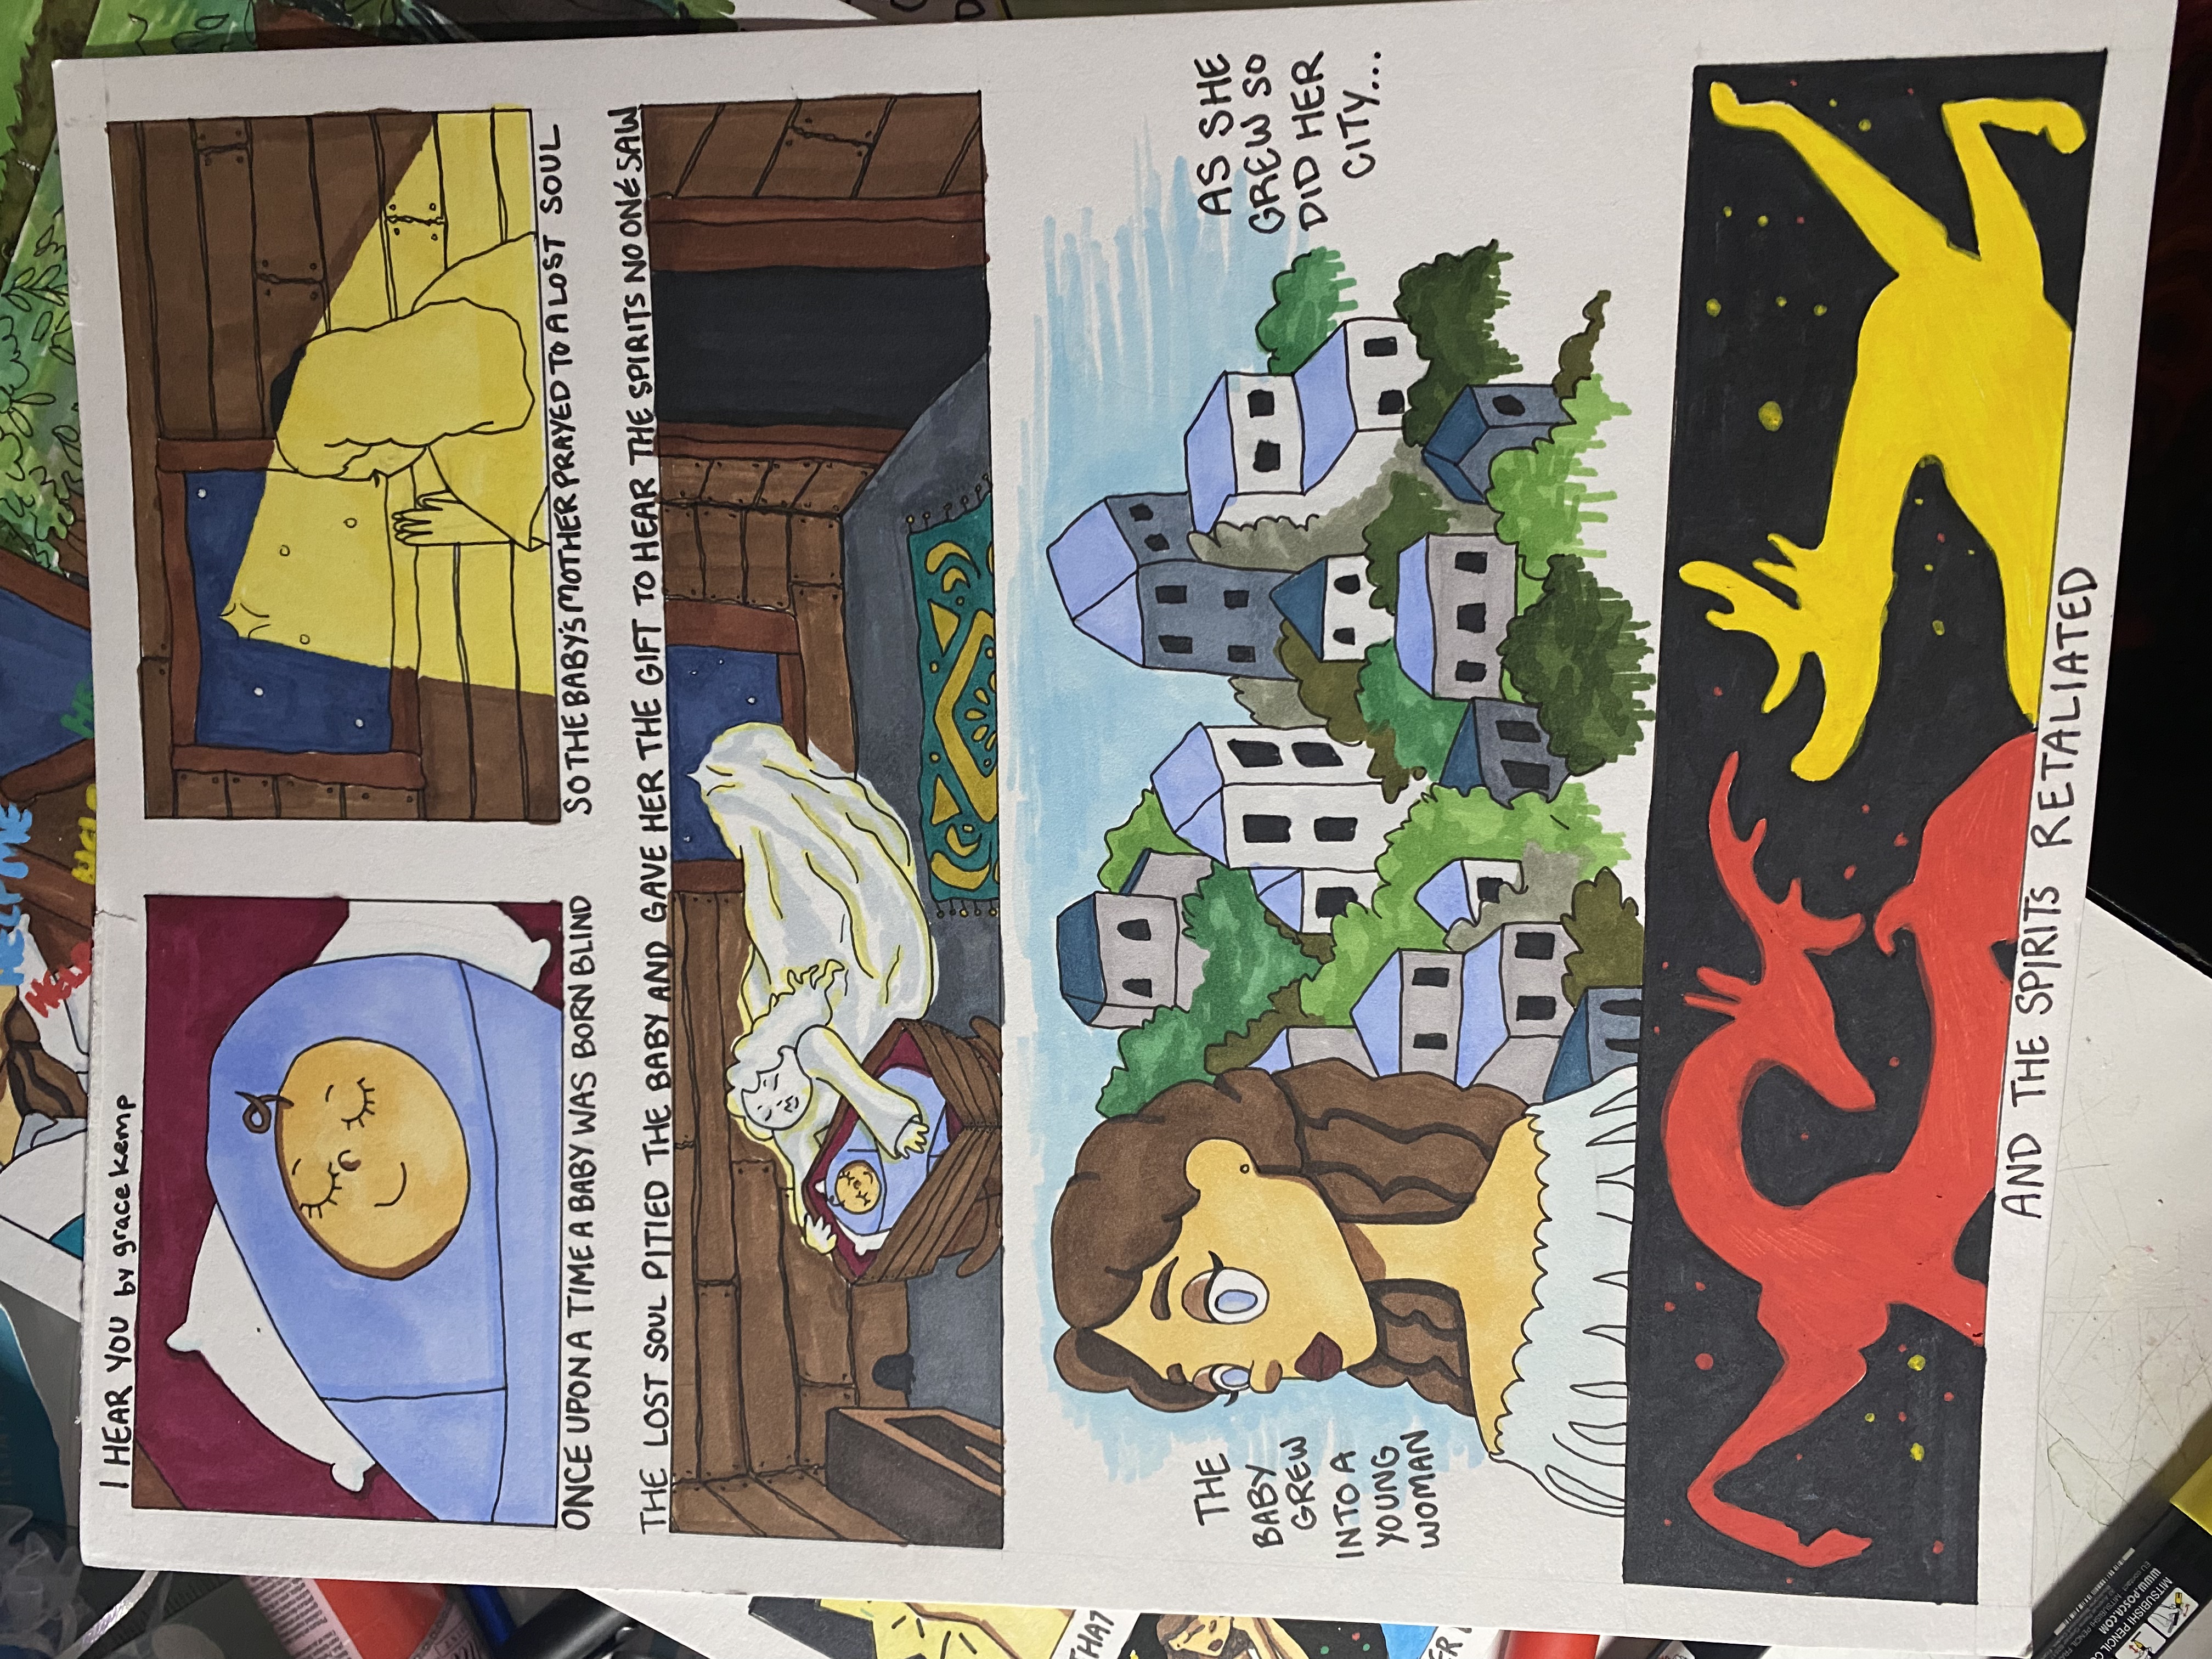 HELP ME
HELP
HELP
HE
I HEAR YOU by grace kemp
ONCE UPON A TIME A BABY WAS BORN BLIND
SO THE BABY'S MOTHER PRAYED TO A LOST SOUL
THE LOST SOUL PITIED THE BABY AND GAVE HER THE GIFT TO HEAR THE SPIRITS NO ONE SAW
THAT
THE
BABY
GREW
INTO A
YOUNG
WOMAN
AS SHE
GREW SO
DID HER
CITY...
ER
AND THE SPIRITS RETALIATED
MITSUBISHI PENCIL CO
WWW.POSCA.COM